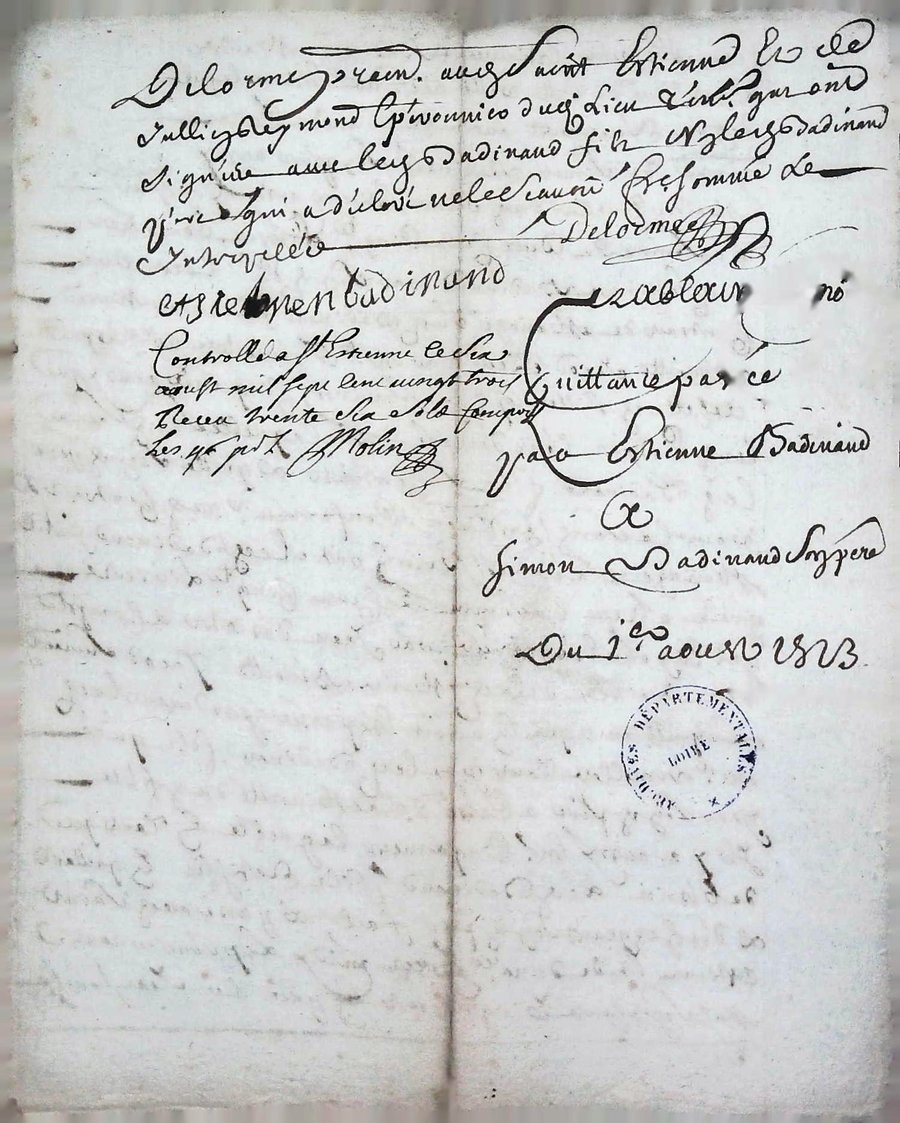 Delorme pratn. aud. Saint Estienne Et de
Jullien Reymond dud. Lieu qui ont
signé avec led. Badinand filz Led. Badinand
père qui a déclaré ne le sçavoir de
Interpellé
Delorme
estienne badinand
Controllé a St. Estienne le six
aoust mil sept cent vingt trois
Receu trente six sols
Molin
Quittance passée
par Estienne Badinand
a
Simon Badinand Son père
Du 1er aoust 1723
ARCHIVES DÉPARTEMENTALES
LOIRE